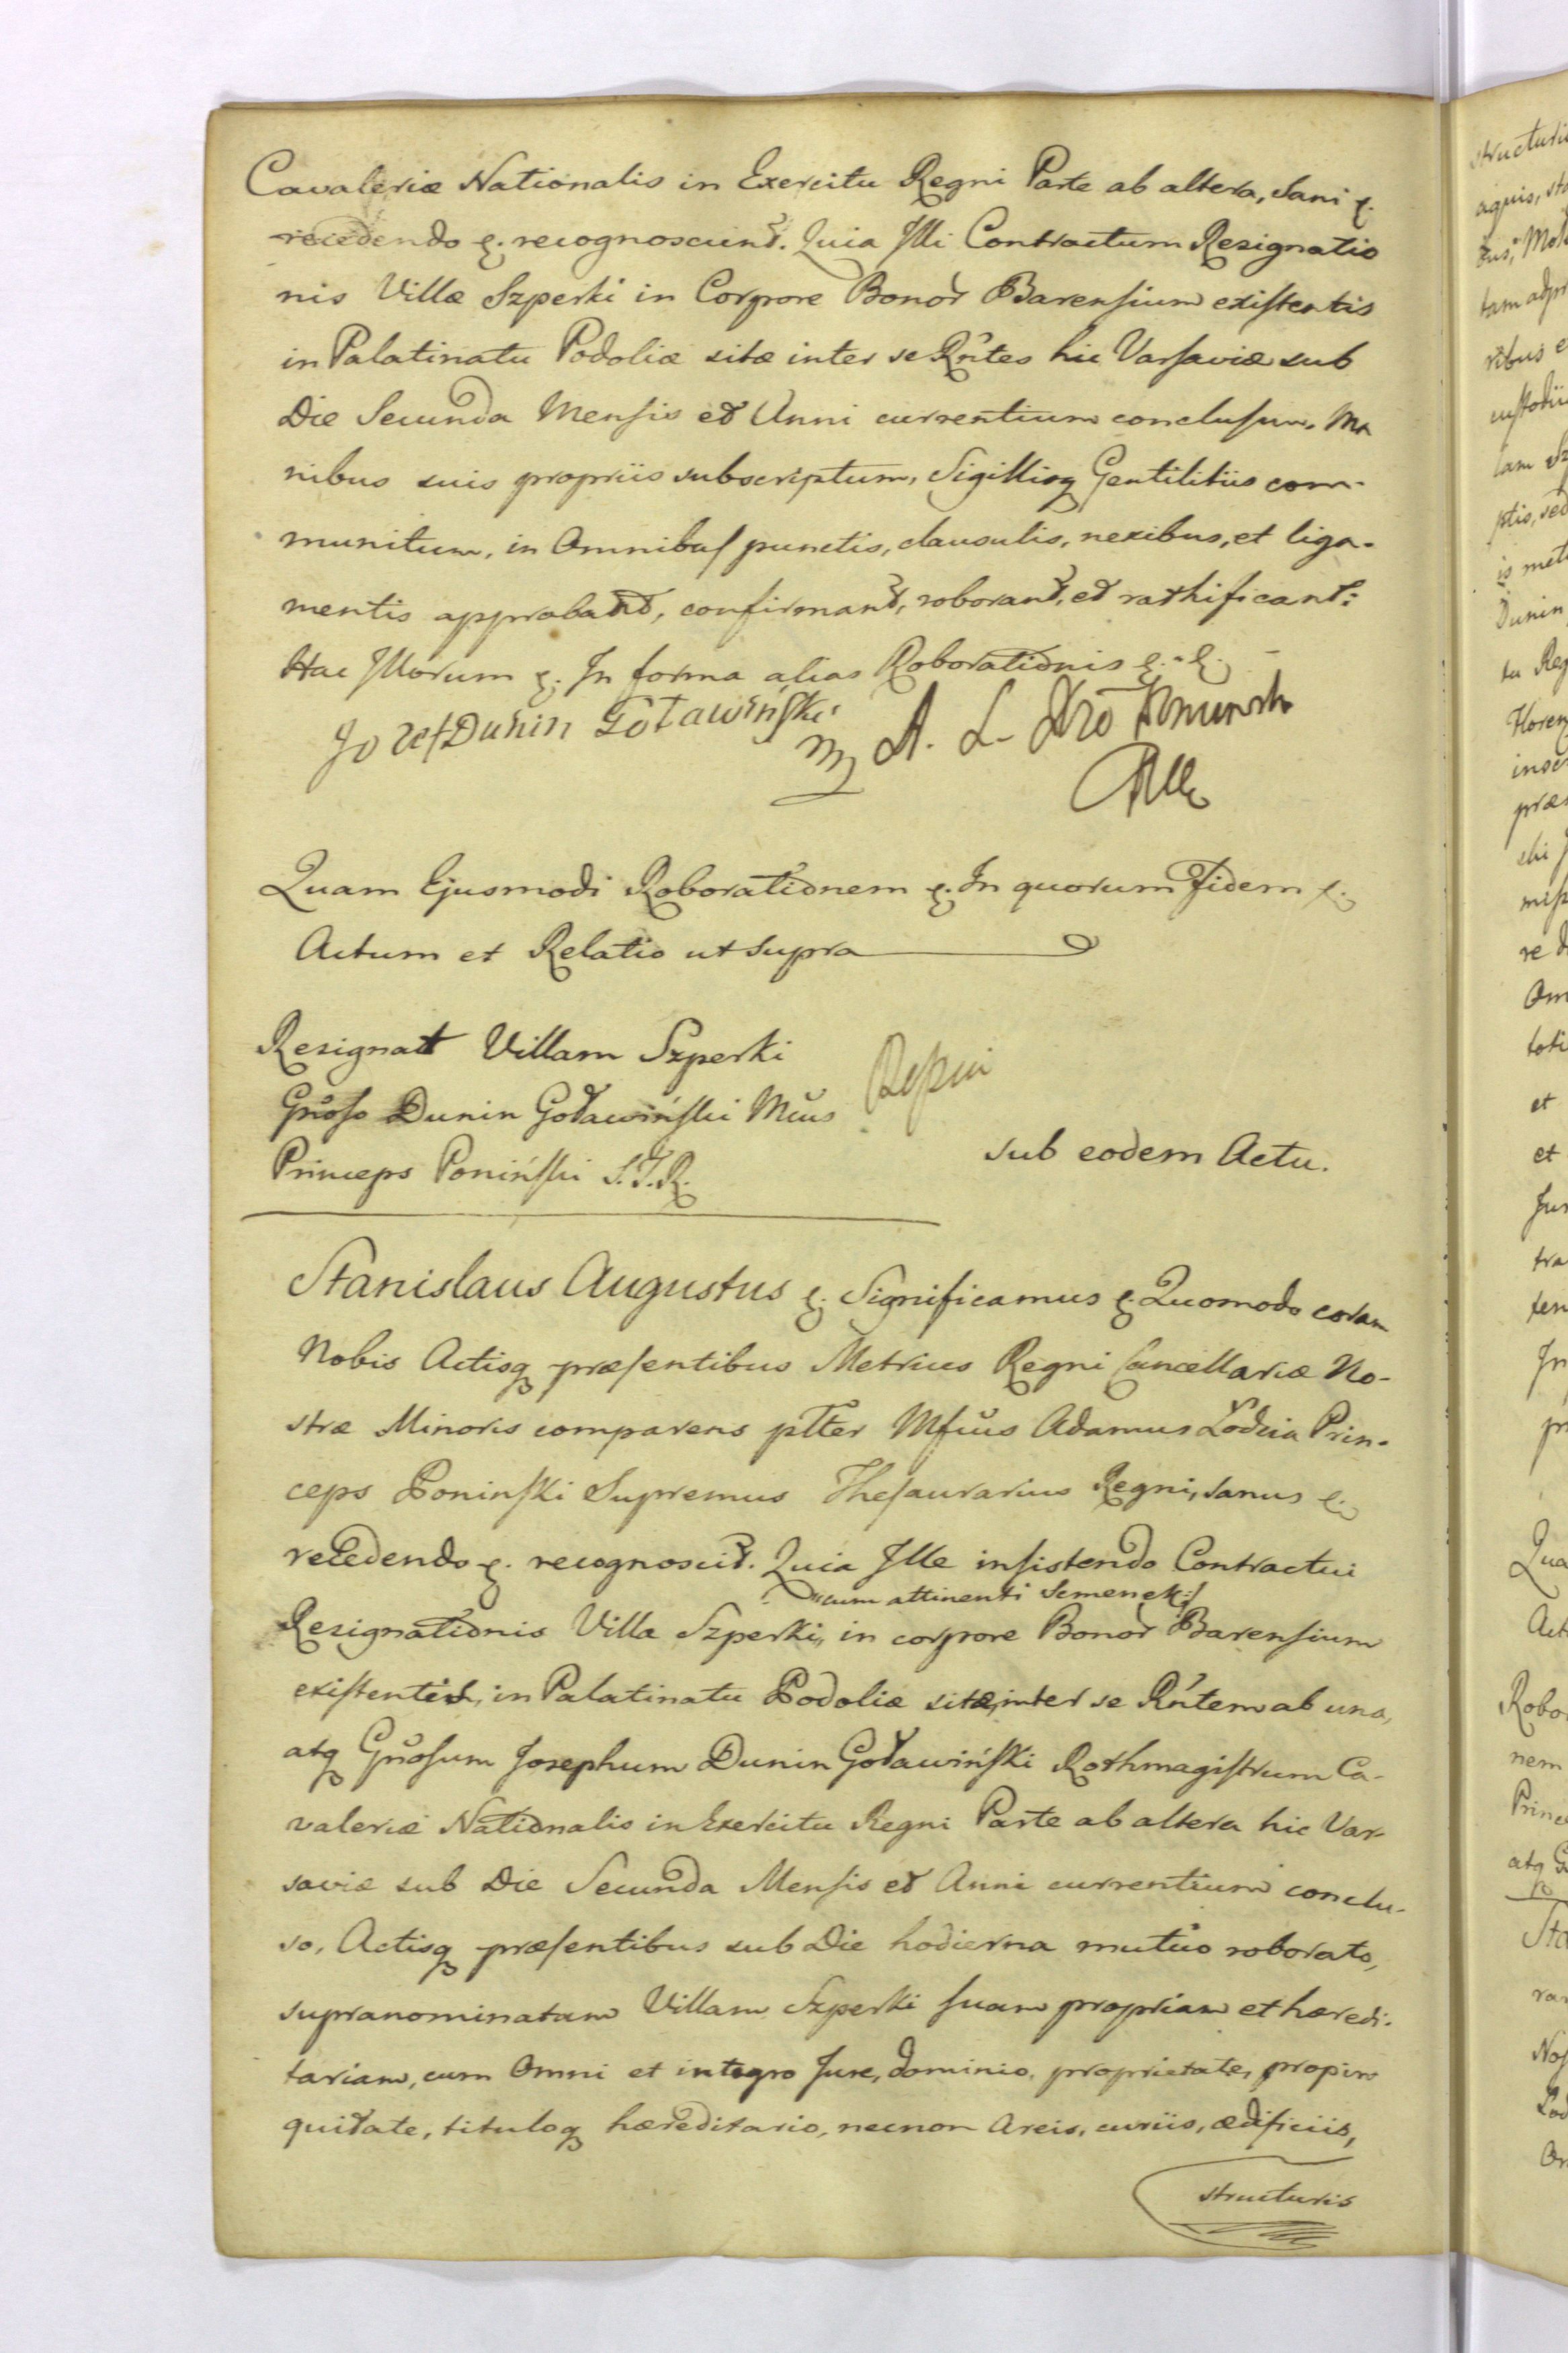 Cavaleriæ Nationalis in Exercitu Regni Parte ab altera, Sani &.
recedendo &. recognoscunt. Quia Illi Contractum Resignatio
nis Villæ Szperki in Corpore Bonor Barensium existentis
in Palatinatu Podoliæ sitæ inter se Rñtes hic Varsaviæ sub
Die Secunda Mensis et Anni currentium conclusum, Ma
nibus suis propriis subscriptum, Sigillisq Gentilitiis com-
munitum, in Omnibus punctis, clausulis, nexibus, et liga-
mentis approbant, confirmant, roborant, et rathificant:
Hac Illorum &. In forma alias Roborationis &. &.
Jozef Dunin Goławiński
mp A. L.
Quam Ejusmodi Roborationem &. In quorum Fidem &.
Actum et Relatio ut supra
Resignatt Villam Szperki
Gnoso Dunin Goławiński Mcus
Princeps Poniński S.T.R.
sub eodem Actu.
Stanislaus Augustus &. Significamus &. Quomodo coram
Nobis Actisq præsentibus Metrices Regni Cancellariæ No-
stræ Minoris comparens pltter Mfcus Adamus Łodzia Prin-
ceps Poninski Supremus Thesaurarius Regni, sanus &.
recedendo &. recognoscit. Quia Ille insistendo Contractui
cum attinenti Semenek:/
Resignationis Villæ Szperki, in corpore Bonor Barensium
existentis, in Palatinatu Podoliæ sitæ, inter se Rñtem ab una,
atq Gnosum Josephum Dunin Goławiński Rothmagistrum Ca-
valeriæ Nationalis in Exercitu Regni Parte ab altera hic Var-
saviæ sub Die Secunda Mensis et Anni currentium conclu-
so, Actisq præsentibus sub Die hodierna mutuo roborato,
supranominatam Villam Szperki suam propriam et hæredi-
tariam, cum Omni et integro Jure, dominio, proprietate, propin
quitate, tituloq hæreditario, necnon Areis, curiis, ædificiis,
structuris